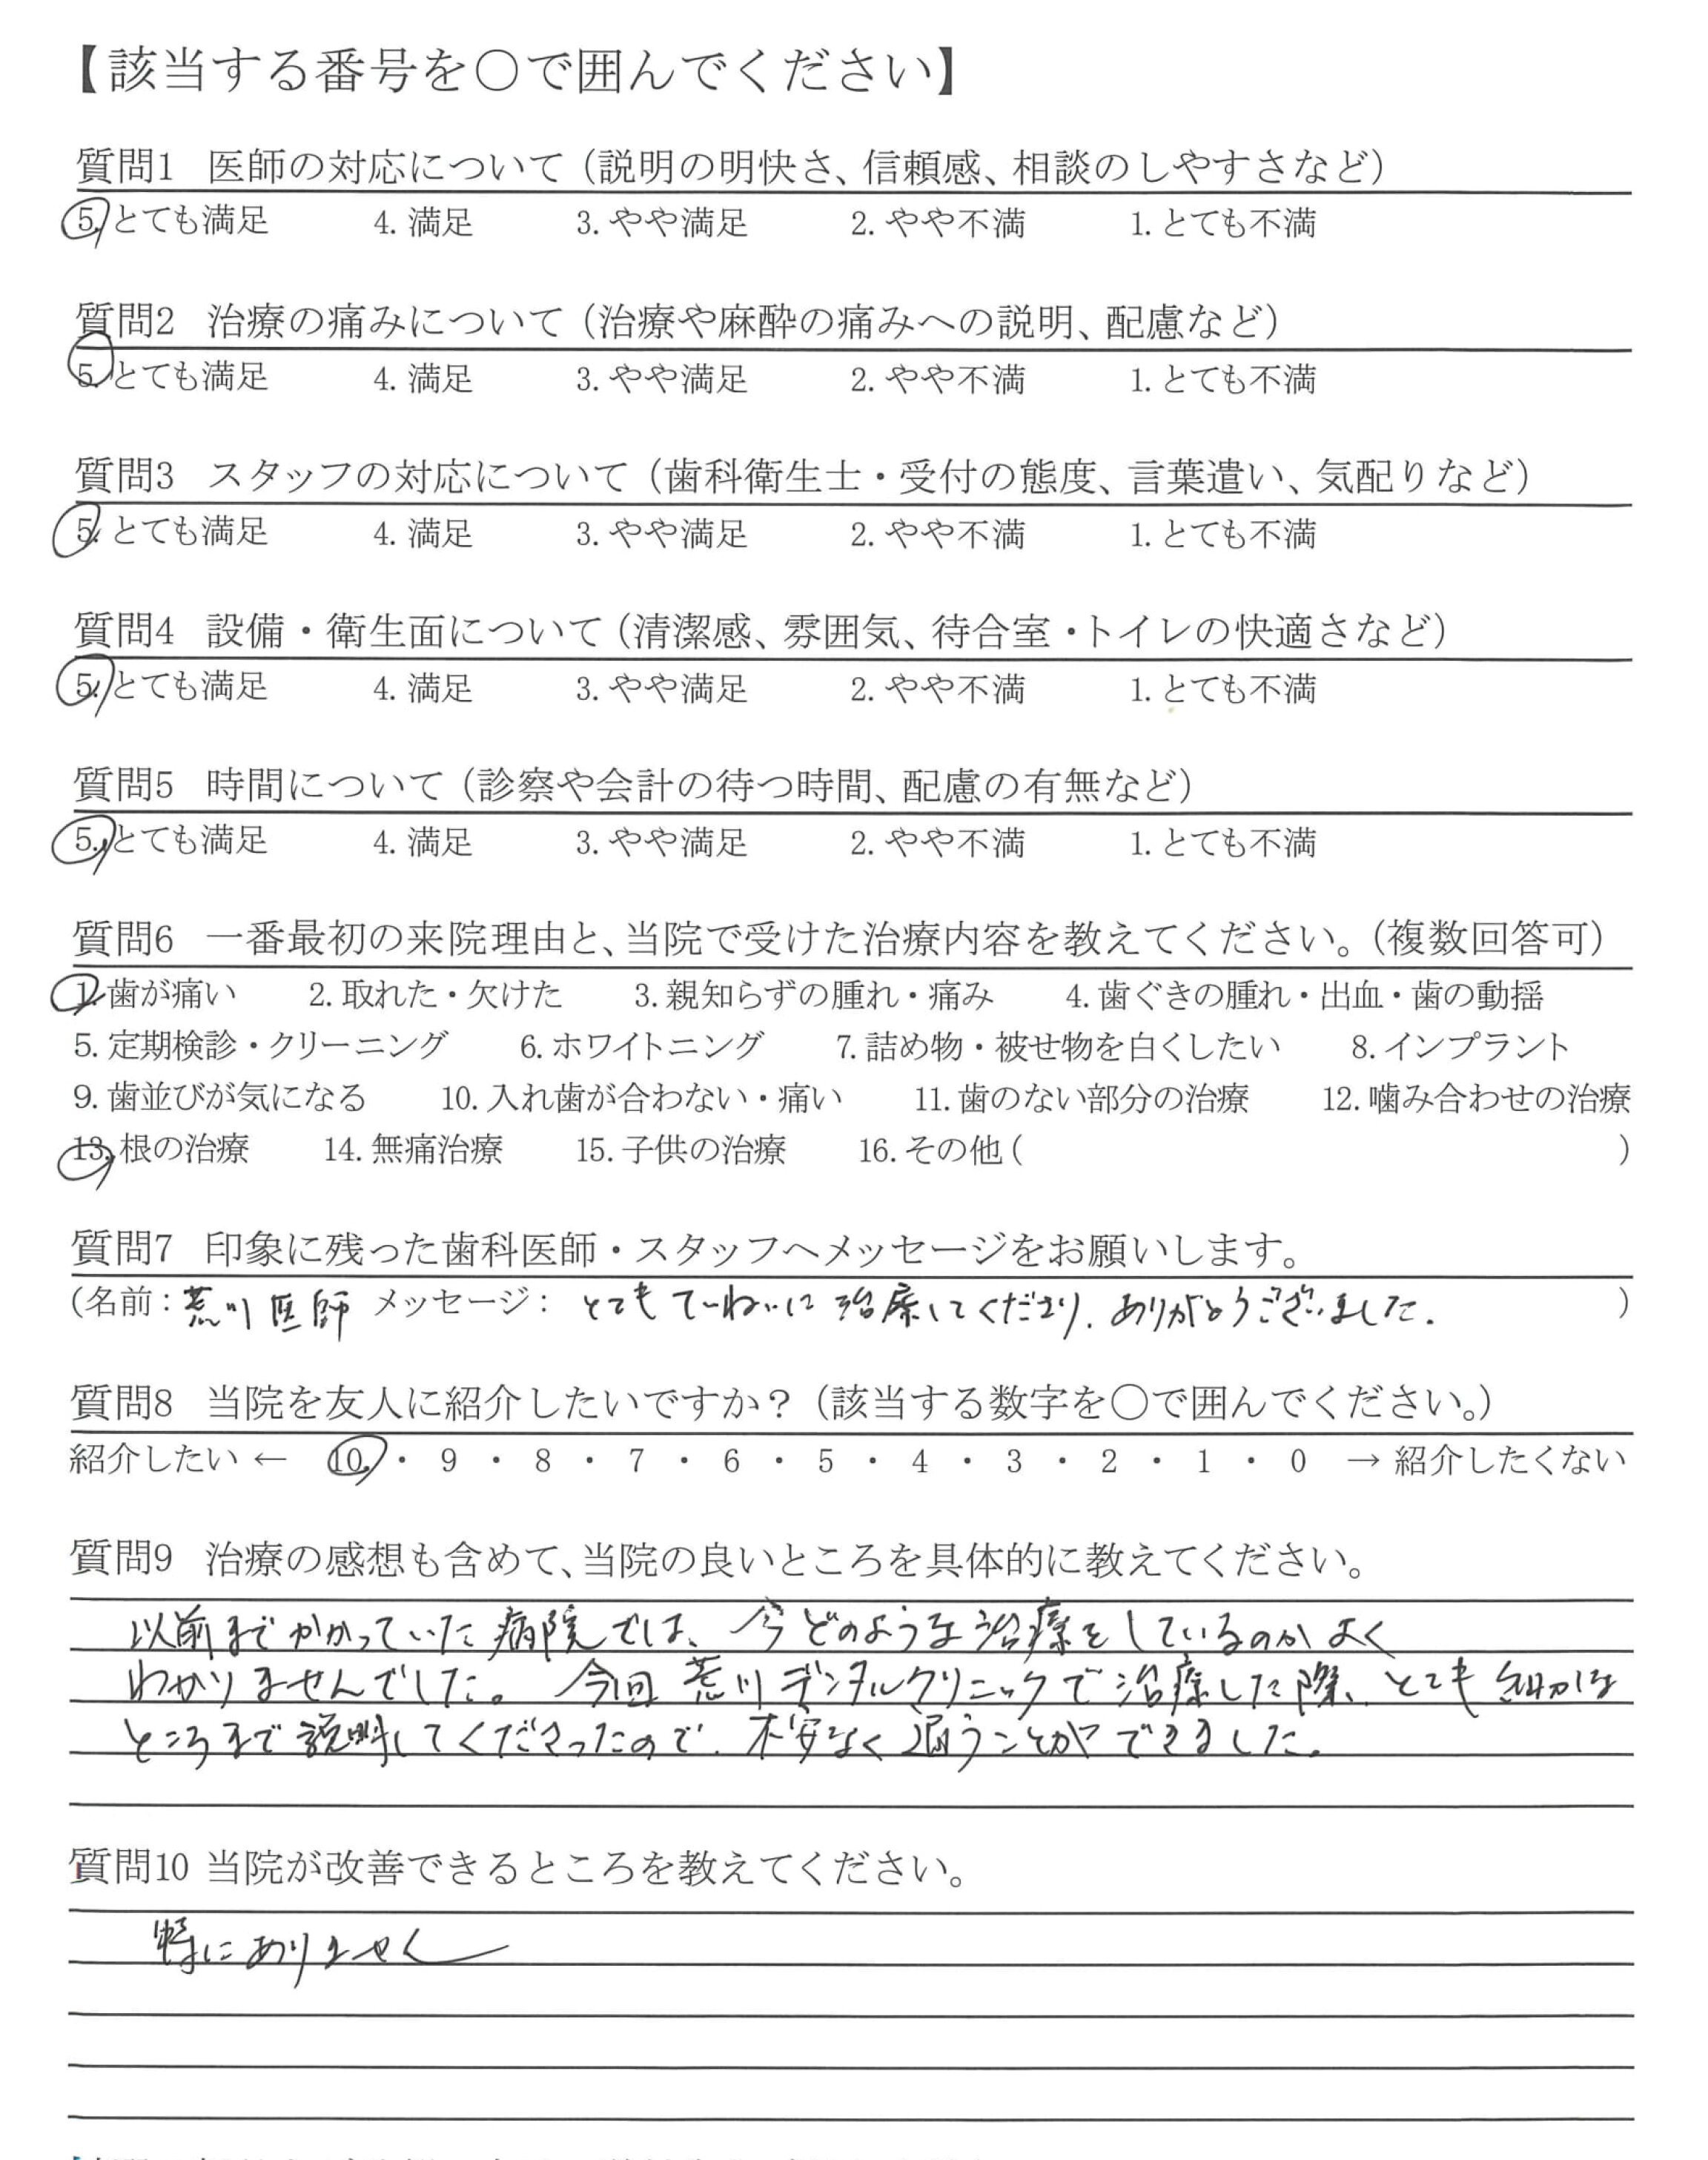 【該当する番号を○で囲んでください】
質問1 医師の対応について（説明の明快さ、信頼感、相談のしやすさなど）
5. とても満足 4. 満足 3. やや満足 2. やや不満 1. とても不満
質問2 治療の痛みについて（治療や麻酔の痛みへの説明、配慮など）
5. とても満足 4. 満足 3. やや満足 2. やや不満 1. とても不満
質問3 スタッフの対応について（歯科衛生士・受付の態度、言葉遣い、気配りなど）
5. とても満足 4. 満足 3. やや満足 2. やや不満 1. とても不満
質問4 設備・衛生面について（清潔感、雰囲気、待合室・トイレの快適さなど）
5. とても満足 4. 満足 3. やや満足 2. やや不満 1. とても不満
質問5 時間について（診察や会計の待つ時間、配慮の有無など）
5. とても満足 4. 満足 3. やや満足 2. やや不満 1. とても不満
質問6 一番最初の来院理由と、当院で受けた治療内容を教えてください。（複数回答可）
1. 歯が痛い 2. 取れた・欠けた 3. 親知らずの腫れ・痛み 4. 歯ぐきの腫れ・出血・歯の動揺
5. 定期検診・クリーニング 6. ホワイトニング 7. 詰め物・被せ物を白くしたい 8. インプラント
9. 歯並びが気になる 10. 入れ歯が合わない・痛い 11. 歯のない部分の治療 12. 噛み合わせの治療
13. 根の治療 14. 無痛治療 15. 子供の治療 16. その他（ ）
質問7 印象に残った歯科医師・スタッフへメッセージをお願いします。
（名前：荒川医師 メッセージ： とてもていねいに治療してくださり、ありがとうございました。 ）
質問8 当院を友人に紹介したいですか？（該当する数字を○で囲んでください。）
紹介したい ← 10 ・ 9 ・ 8 ・ 7 ・ 6 ・ 5 ・ 4 ・ 3 ・ 2 ・ 1 ・ 0 → 紹介したくない
質問9 治療の感想も含めて、当院の良いところを具体的に教えてください。
以前までかかっていた病院では、今どのような治療をしているのかよく
わかりませんでした。今回荒川デンタルクリニックで治療した際、とても細かな
ところまで説明してくださったので、不安なく通うことができました。
質問10 当院が改善できるところを教えてください。
特にありません